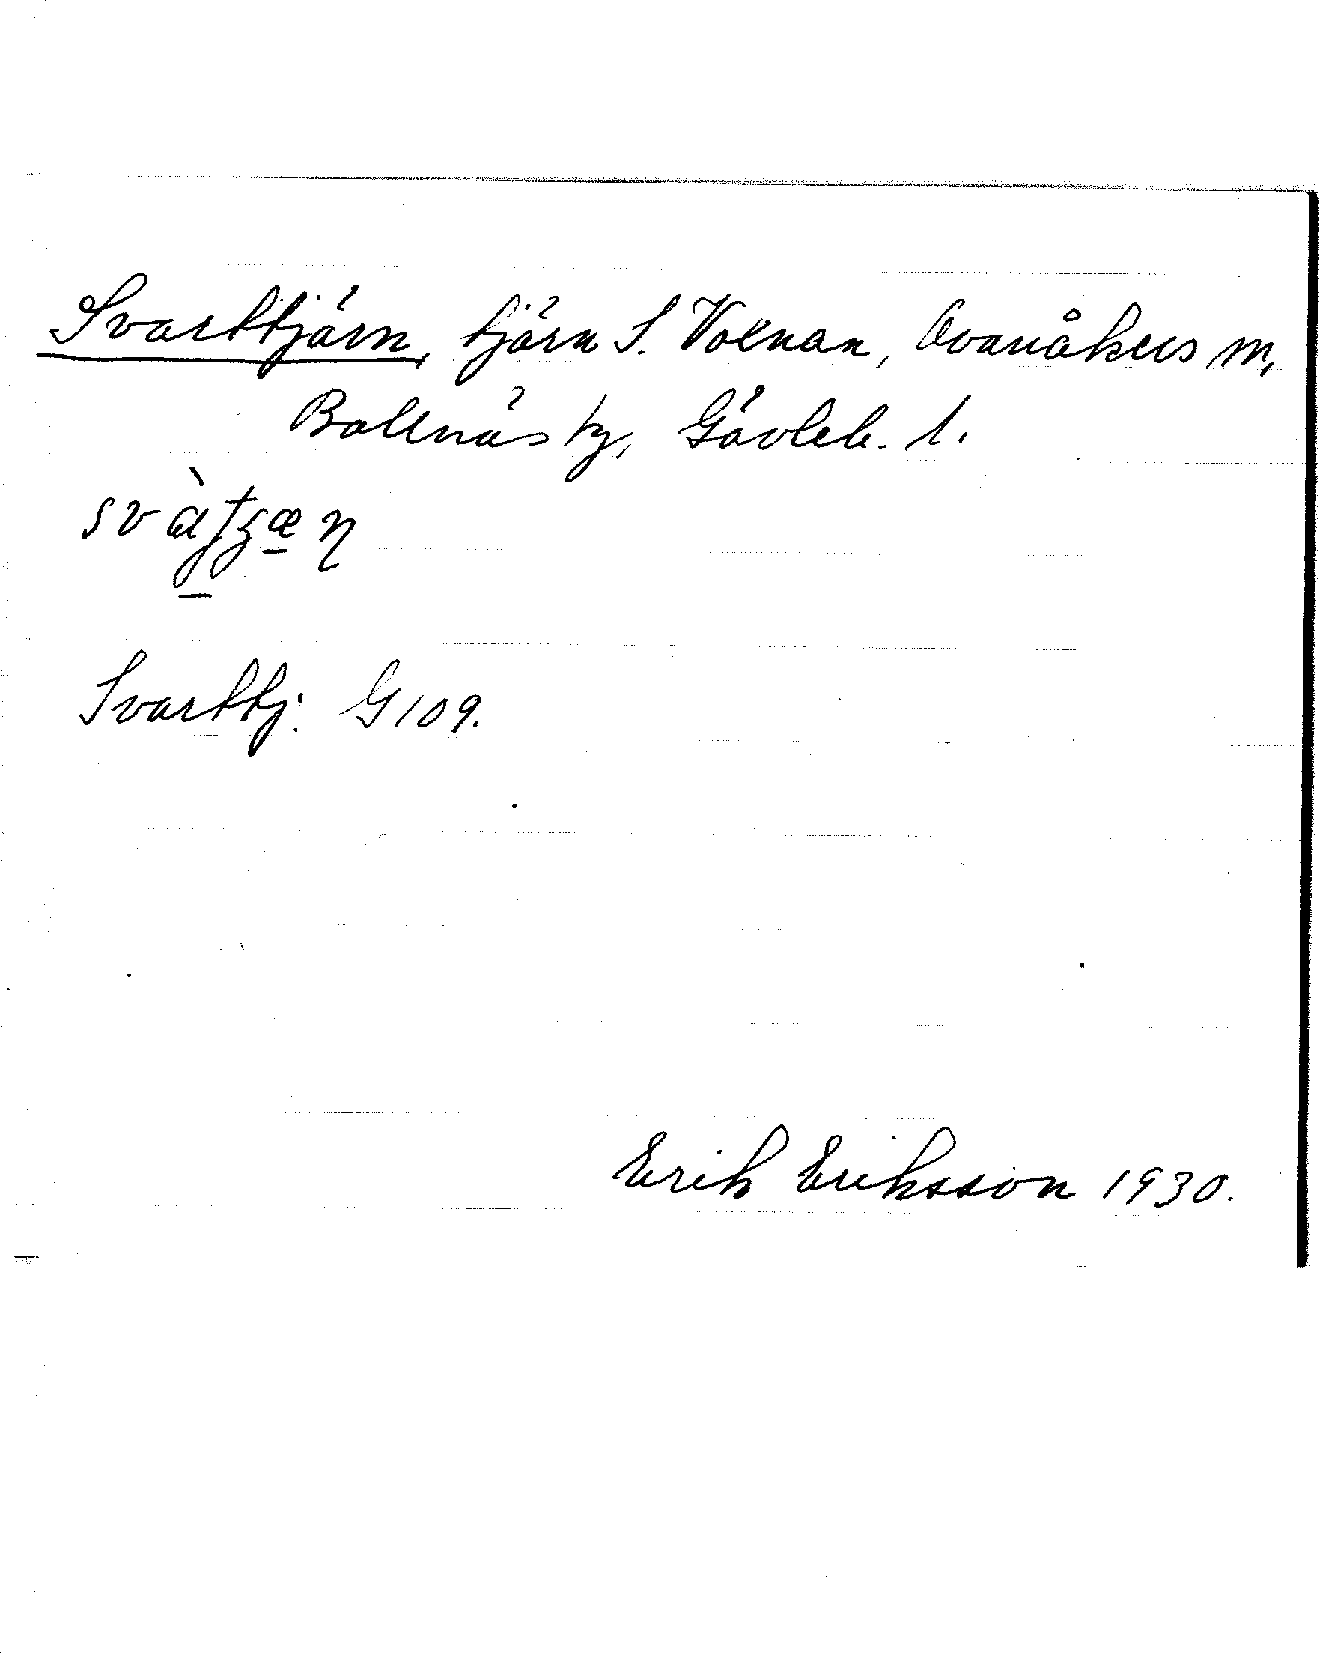 Svarttjärn, tjärn S. Voxnan, Ovanåkers sn,
Bollnäs tg, Gävleb. l.
Svarttj. G 109.
Erik Eriksson 1930.